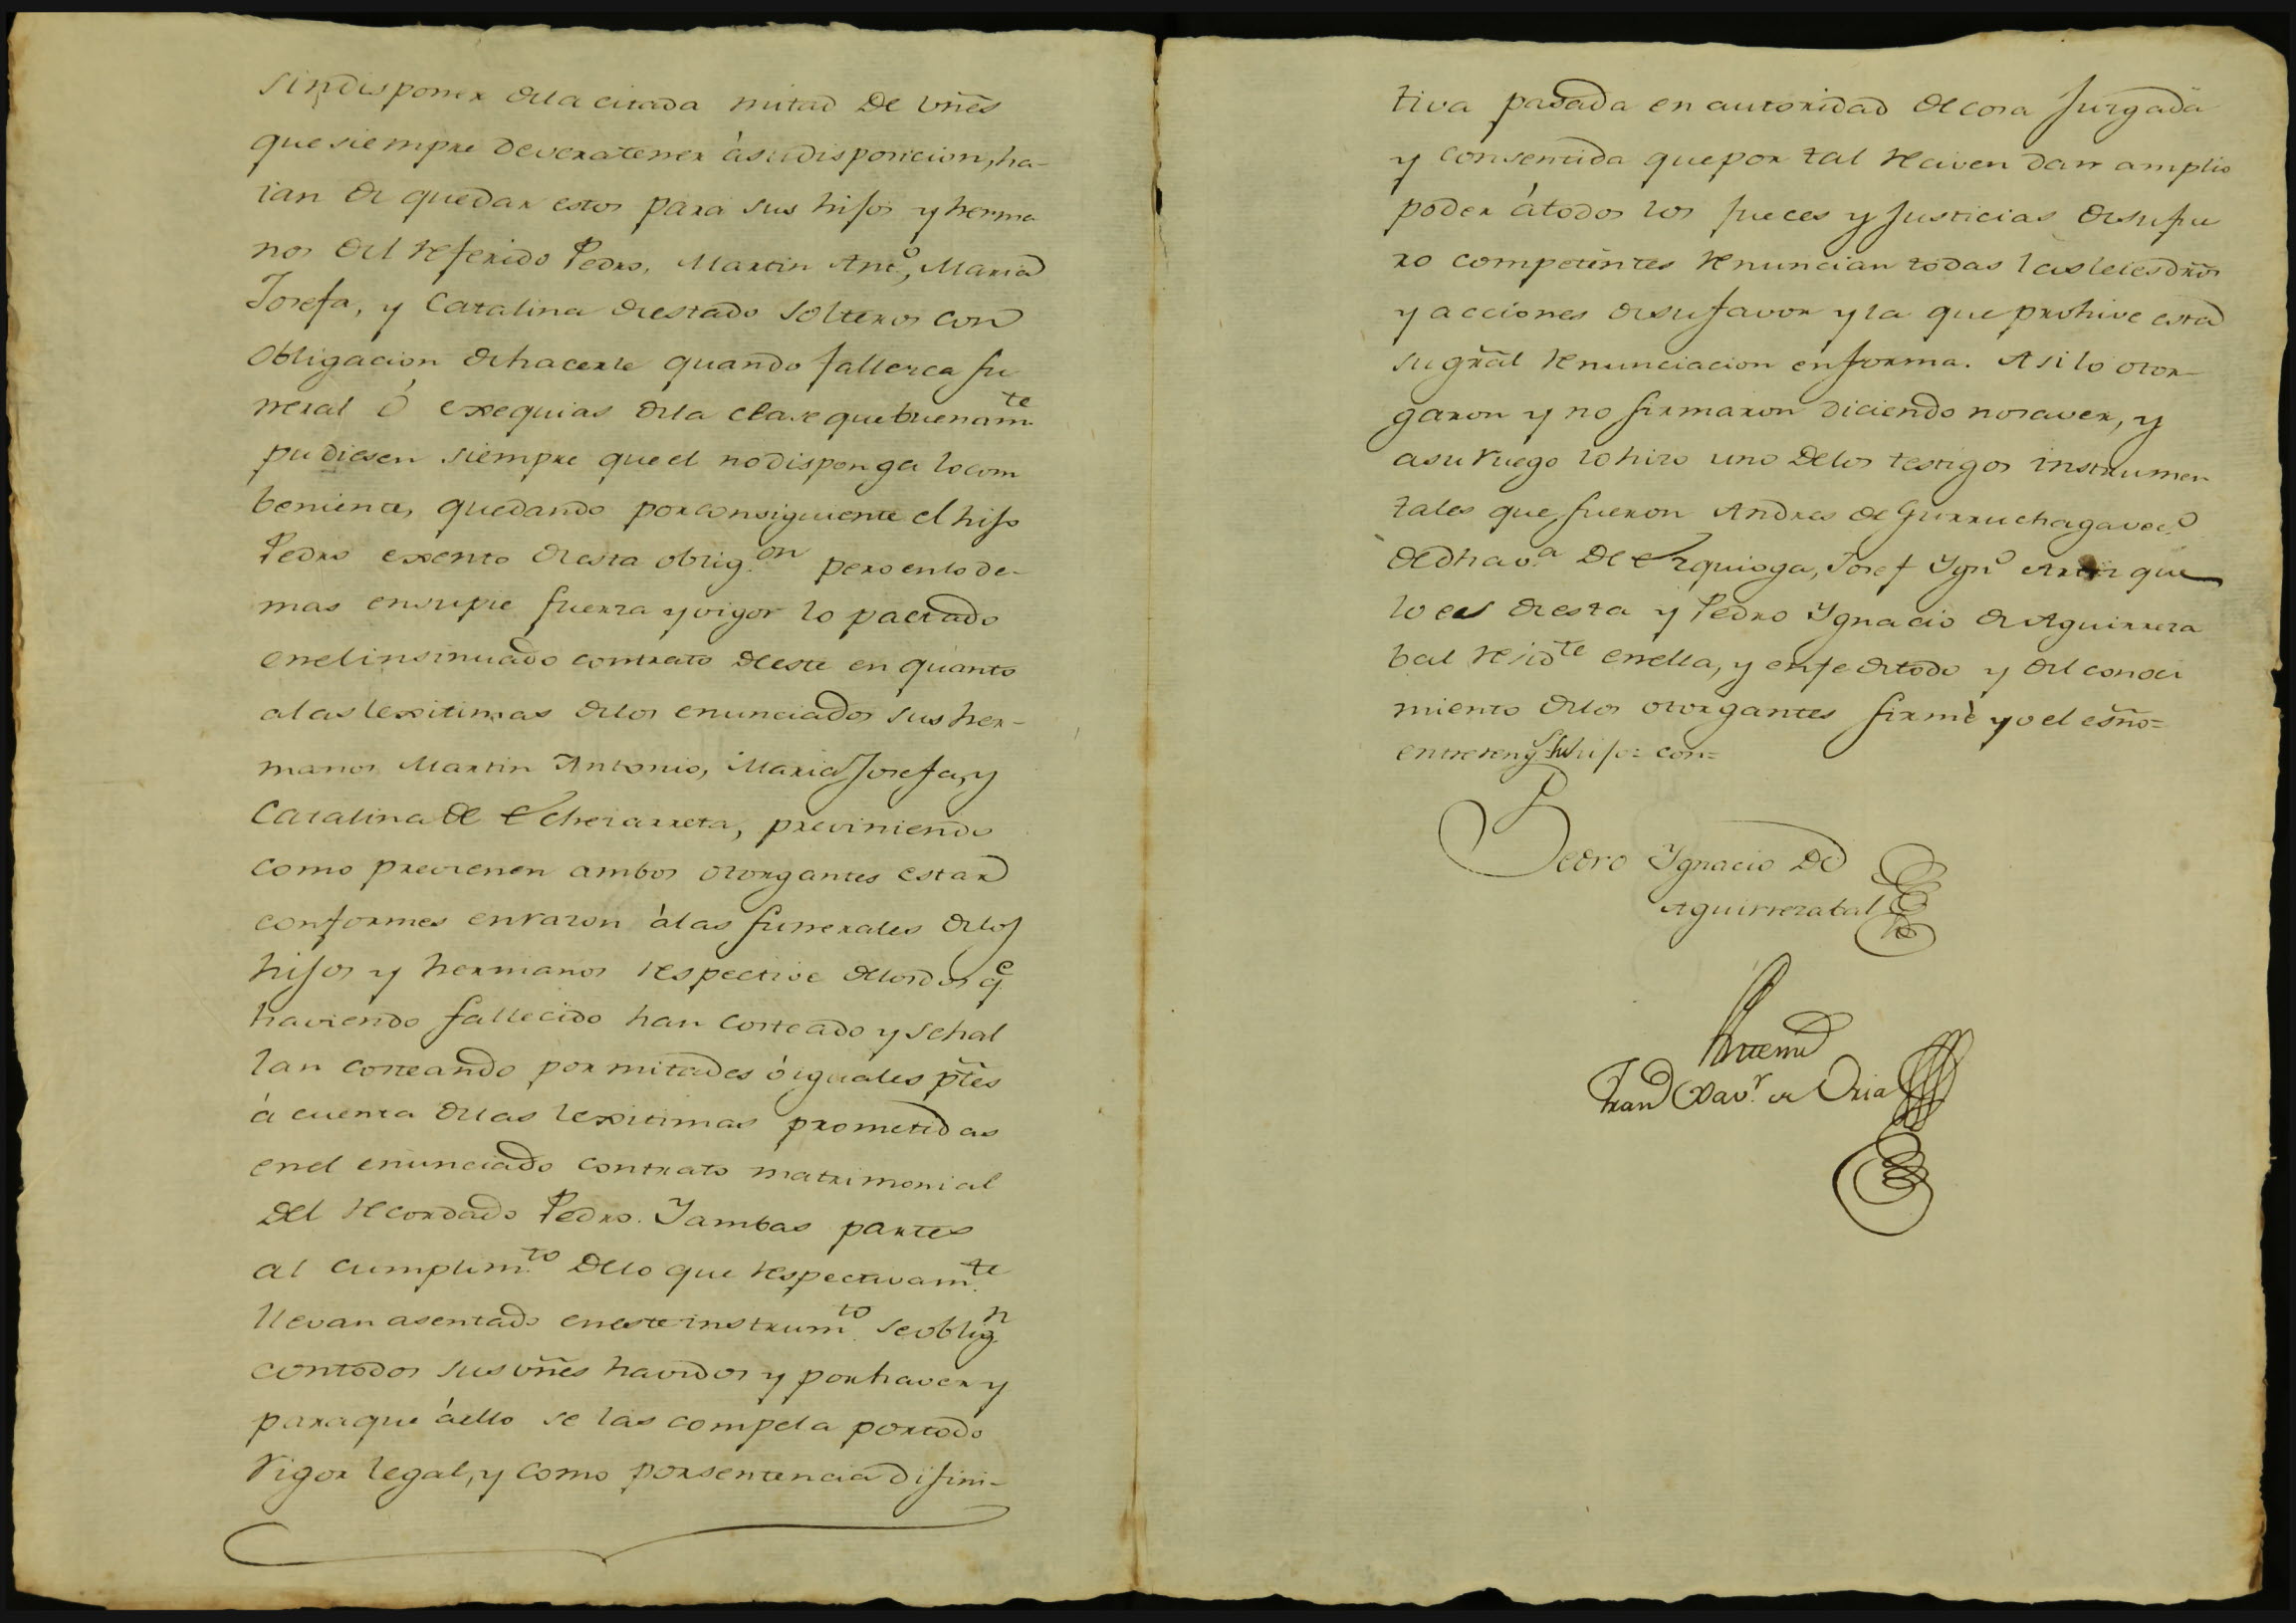 sin disponer dela citada mitad de vñes
que siempre devera tener à su disposicion, ha-
ian de quedar estos para sus hijos y herma
nos del referido Pedro, Martin Antº, Maria
Josefa, y Catalina de estado solteros con
obligacion de hacerle quando fallezca fu
neral ó exequias dela clase que buenamte
pudiesen siempre que el no disponga lo com
beniente, quedando por consiguiente el hijo
Pedro exento de esta obligon pero en lo de-
mas en su pie fuerza y vigor lo pactado
en el insinuado contrato de este en quanto
alas lexitimas delos enunciados sus her-
manos Martin Antonio, Maria Josefa, y
Catalina de Echezarreta, previniendo
como previenen ambos otorgantes estar
conformes en razon à las funerales delos
hijos y hermanos respective delos dos qe
haviendo fallecido han costeado y se hal
lan costeando por mitades ó iguales ptes
à cuenta delas lexitimas prometidas
en el enunciado contrato matrimonial
del recordado Pedro. Y ambas partes
al cumplimto delo que respectivamte
llevan asentado en este instrumto se oblign
con todos sus vñes havidos y por haver y
para que àello se las compela por todo
rigor legal, y como por sentencia difini-
tiva pasada en autoridad de cosa Juzgada
y consentida que por tal reciven dan amplio
poder átodos los jueces y Justicias de su fu
ro competentes renuncian todas las leies dños
y acciones de su favor y la que prohive esta
su gral renunciacion en forma. Asi lo otor-
garon y no firmaron diciendo no saver, y
a su ruego lo hizo uno delos testigos instrumen
tales que fueron Andres de Gurruchaga vecº
de dha va de Ezquioga, Josef Ygnº que
lo es de esta y Pedro Ygnacio de Aguirreza
bal residte en ella, y en fe de todo y del conoci
miento delos otorgantes firmè yo el esño=
entrereng hijo= con=
Pedro Ygnacio de
Aguirrezabal
Ante mi
Fran Xavr de Oria